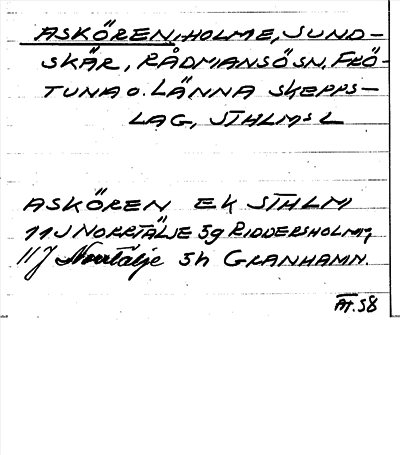 ASKÖREN, HOLME, SUND-
SKÄR, RÅDMANSÖ SN, FRÖ-
TUNA O. LÄNNA SKEPPS-
LAG, STHLMS L
ASKÖREN EK STHLM
11J NORRTÄLJE 5g RIDDERSHOLM,
11J Norrtälje 5h GRANHAMN.
AT. 58